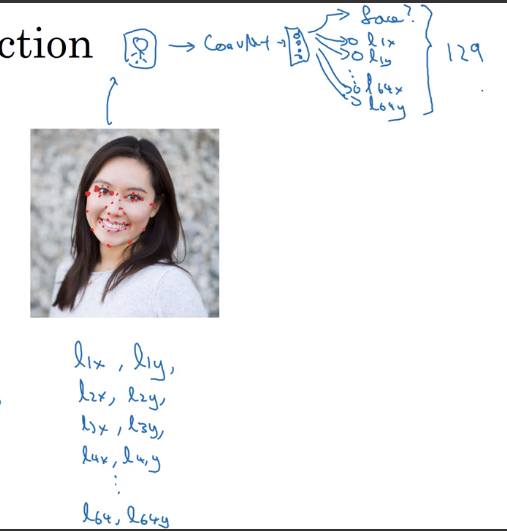 ction
ConvNet
face?
l1x
l1y
⋮
l64x
l64y
129
l1x, l1y,
l2x, l2y,
l3x, l3y,
l4x, l4,y
⋮
l64, l64y